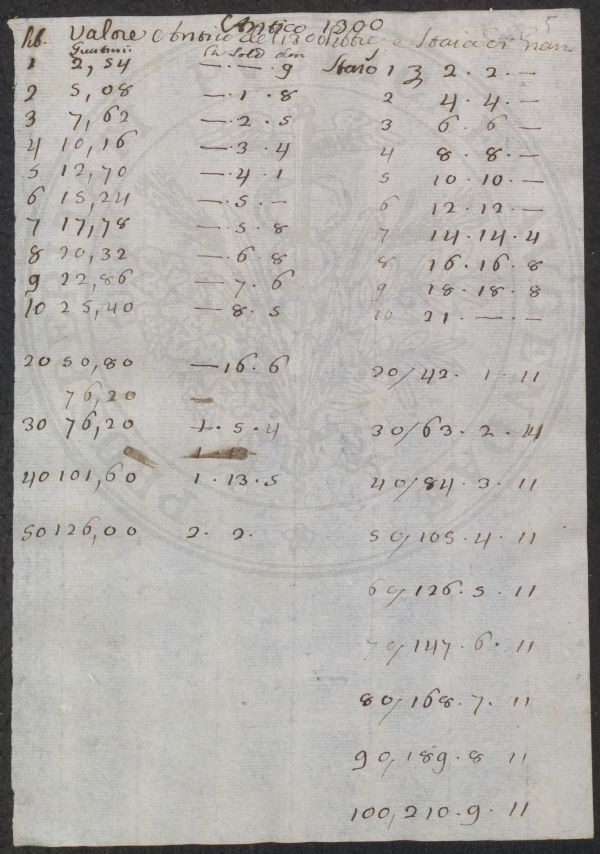 Antico 1300
5
lib. Valore Antico del 1300 e Staia di Grano
Sold den
1 2,54 — . — . 9 Staio 1 2 . 2 . —
2 5,08 — . 1 . 8 2 4 . 4 . —
3 7,62 — . 2 . 5 3 6 . 6 —
4 10,16 — . 3 . 4 4 8 . 8 . —
5 12,70 — . 4 . 1 5 10 . 10 . —
6 15,24 — . 5 . — 6 12 . 12 . —
7 17,78 — . 5 . 8 7 14 . 14 . 4
8 20,32 — . 6 . 8 8 16 . 16 . 8
9 22,86 — . 7 . 6 9 18 . 18 . 8
10 25,40 — 8 . 5 10 21 . — . —
20 50,80 — 16 . 6 20/42 . 1 . 11
76,20 —
30 76,20 1 . 5 . 4 30/63 . 2 . 11
1 13
40 101,60 1 . 13 . 5 40/84 . 3 . 11
50 126,00 2 . 2 . 50/105 . 4 . 11
60/126 . 5 . 11
70/147 . 6 . 11
80/168 . 7 . 11
90/189 . 8 11
100,210 . 9 . 11